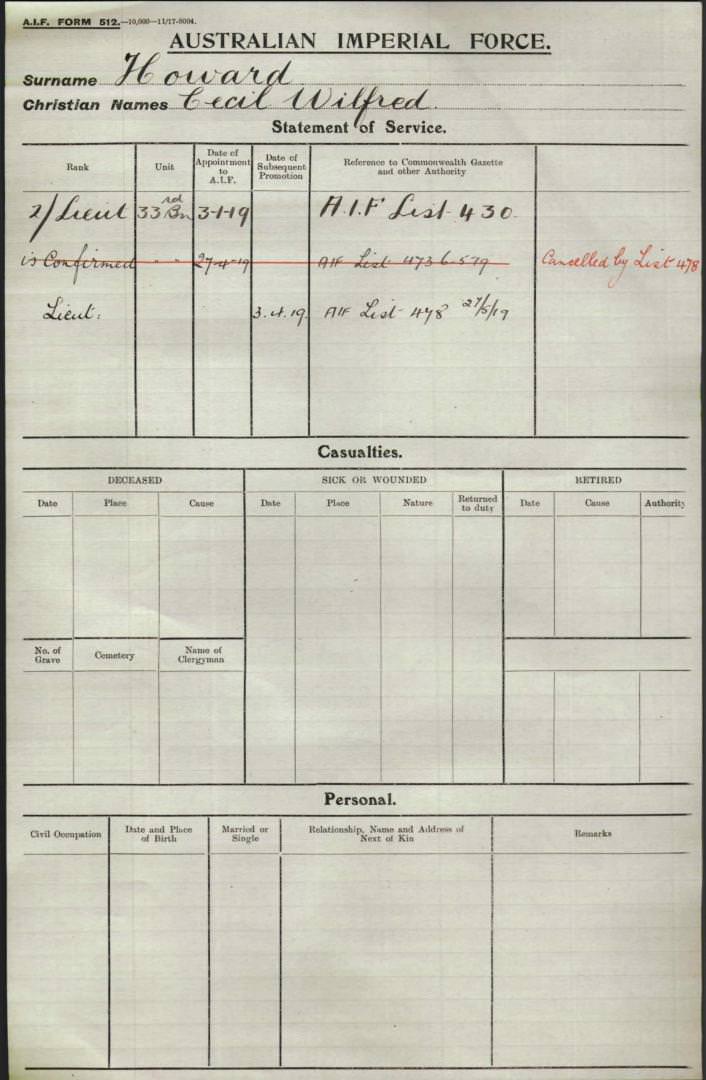 A.I.F. FORM 512.—10,000—11/17-8004.
AUSTRALIAN IMPERIAL FORCE.
Surname Howard
Christian Names Cecil Wilfred.
Statement of Service.
Rank Unit Date of Appointment to A.I.F. Date of Subsequent Promotion Reference to Commonwealth Gazette and other Authority
2/Lieut 33rd Bn 3-1-19 A.I.F List 430.
is Confirmed " " 27-4-19 AIF List 473 6-5-19 Cancelled by List 478
Lieut: 3.4.19. AIF List 478 27/5/19
Casualties.
DECEASED SICK OR WOUNDED RETIRED
Date Place Cause Date Place Nature Returned to duty Date Cause Authority
No. of Grave Cemetery Name of Clergyman
Personal.
Civil Occupation Date and Place of Birth Married or Single Relationship, Name and Address of Next of Kin Remarks